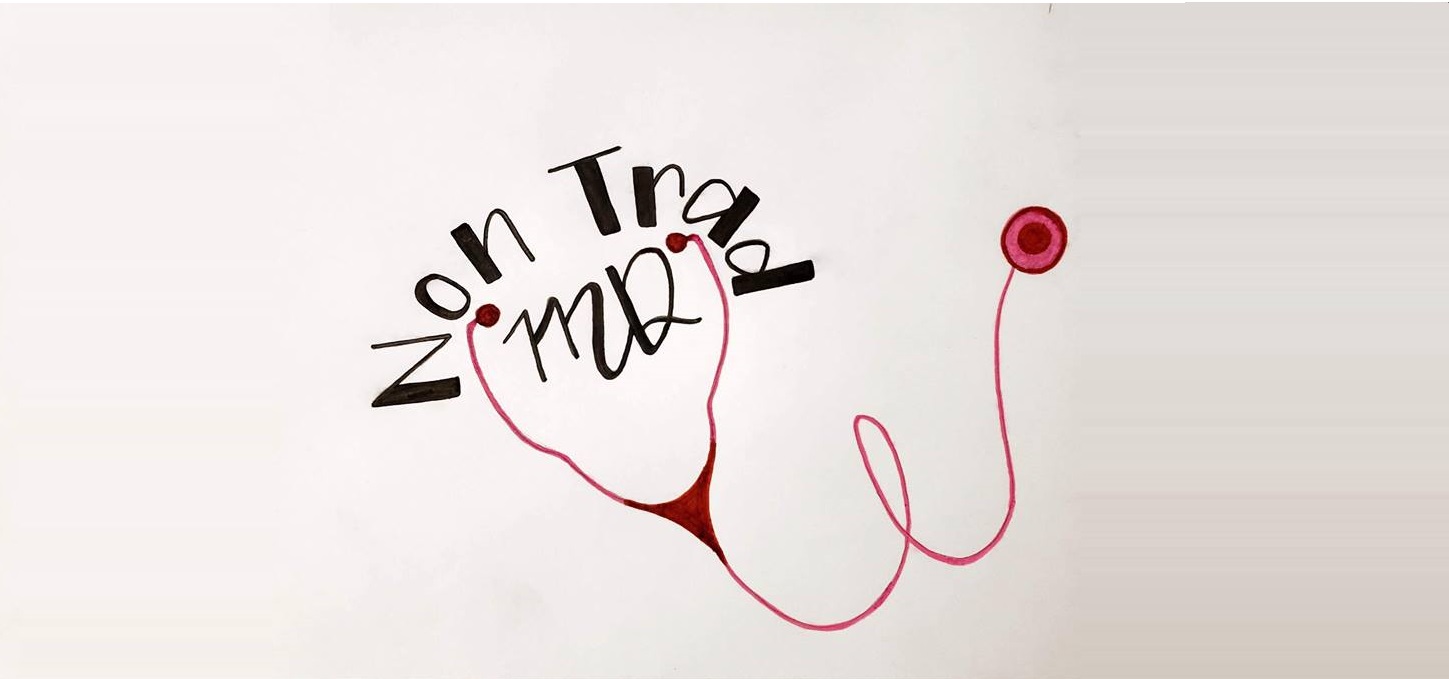 Non Trad
MD